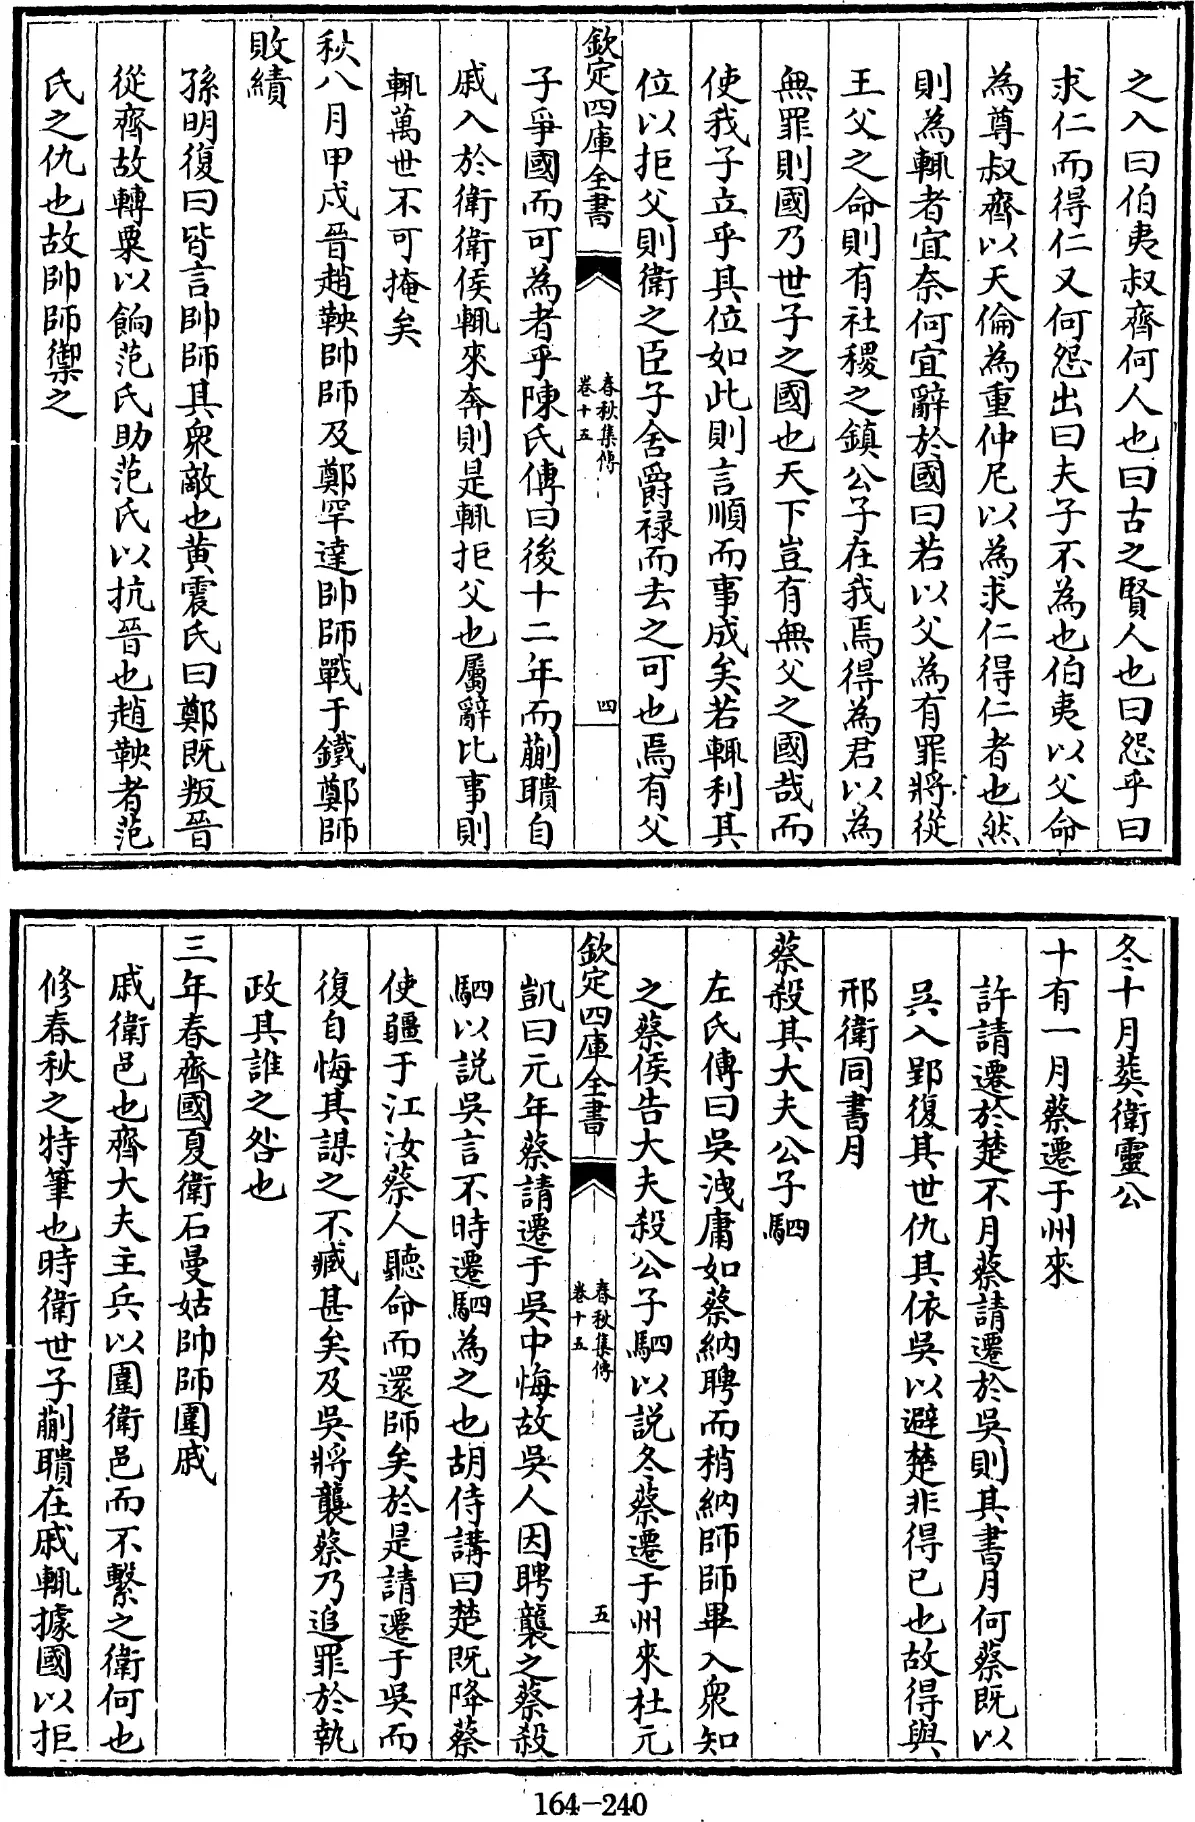 之入曰伯夷叔齊何人也曰古之賢人也曰怨乎曰
求仁而得仁又何怨出曰夫子不為也伯夷以父命
為尊叔齊以天倫為重仲尼以為求仁得仁者也然
則為輒者宜奈何宜辭於國曰若以父為有罪將從
王父之命則有社稷之鎮公子在我焉得為君以為
無罪則國乃世子之國也天下豈有無父之國哉而
使我子立乎其位如此則言順而事成矣若輒利其
位以拒父則衛之臣子舍爵祿而去之可也焉有父
欽定四庫全書
春秋集傳
卷十五
四
子爭國而可為者乎陳氏傳曰後十二年而蒯聵自
戚入於衛衛侯輒來奔則是輒拒父也屬辭比事則
輒萬世不可掩矣
秋八月甲戍晉趙鞅帥師及鄭罕達帥師戰于鐵鄭師
敗績
孫明復曰皆言帥師其衆敵也黄震氏曰鄭既叛晉
從齊故轉粟以餉范氏助范氏以抗晉也趙鞅者范
氏之仇也故帥師禦之
冬十月葬衛靈公
十有一月蔡遷于州來
許請遷於楚不月蔡請遷於吳則其書月何蔡既以
吳入郢復其世仇其依吳以避楚非得已也故得與
邢衛同書月
蔡殺其大夫公子駟
左氏傳曰吳洩庸如蔡納聘而稍納師師畢入衆知
之蔡侯告大夫殺公子駟以說冬蔡遷于州來杜元
欽定四庫全書
春秋集傳
卷十五
五
凱曰元年蔡請遷于吳中悔故吳人因聘襲之蔡殺
駟以説吳言不時遷駟為之也胡侍講曰楚既降蔡
使疆于江汝蔡人聽命而還師矣於是請遷于吳而
復自悔其謀之不臧甚矣及吳將襲蔡乃追罪於執
政其誰之咎也
三年春齊國夏衛石曼姑帥師圍戚
戚衛邑也齊大夫主兵以圍衛邑而不繫之衛何也
修春秋之特筆也時衛世子蒯聵在戚輒據國以拒
164-240